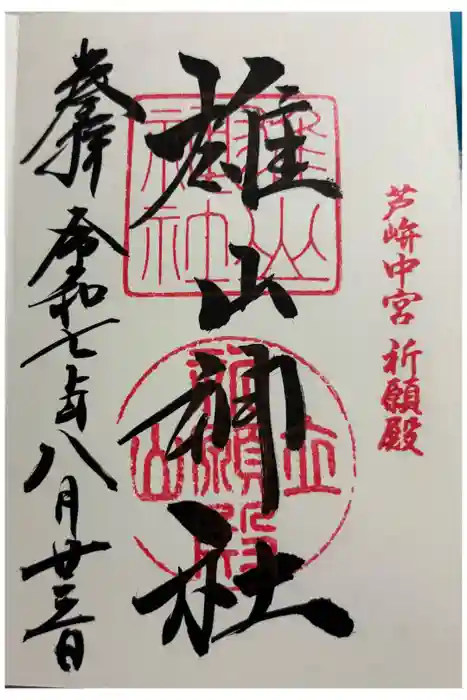 芦峅中宮 祈願殿
雄山神社
雄山神社
立山祈願殿
奉拝 令和七年八月廿三日